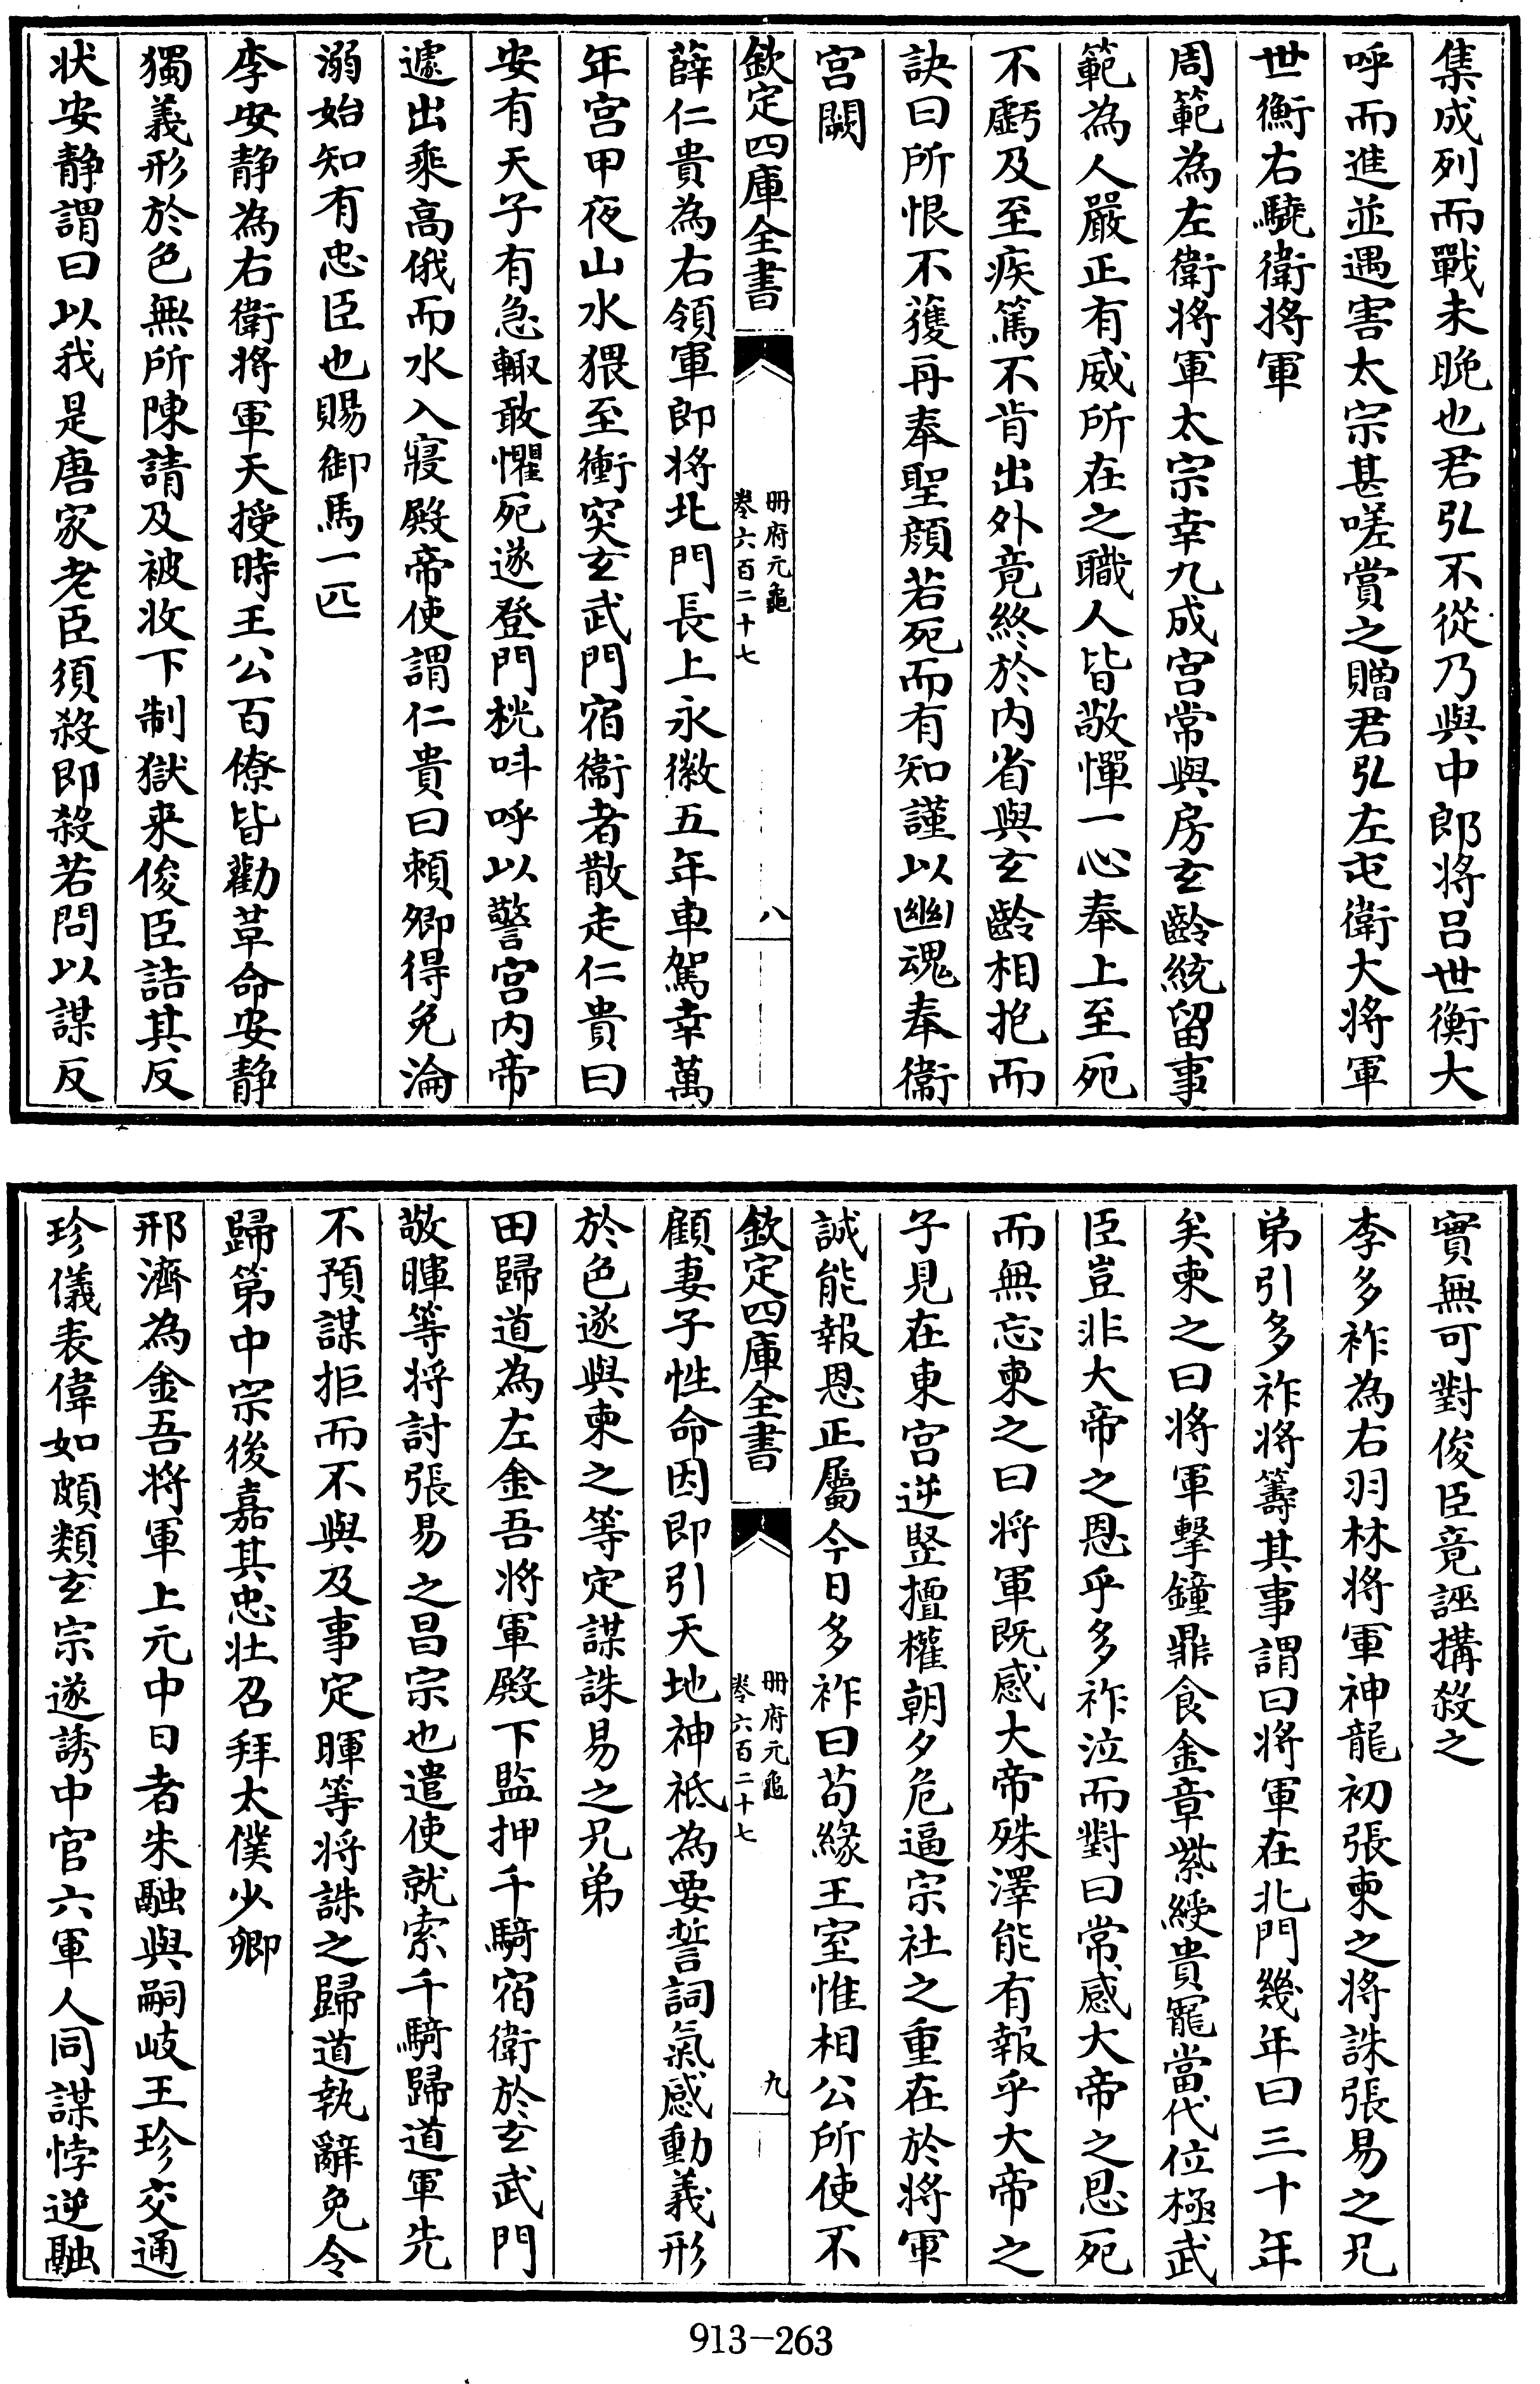 集成列而戰未晚也君弘不從乃與中郎将吕世衡大
呼而進並遇害太宗甚嗟賞之贈君弘左屯衛大将軍
世衡右驍衛将軍
周範為左衛将軍太宗幸九成宫常與房玄齡統留事
範為人嚴正有威所在之職人皆敬憚一心奉上至死
不虧及至疾篤不肯出外竟終於内省與玄齡相抱而
訣曰所恨不獲再奉聖顔若死而有知謹以幽魂奉衛
宫闕
欽定四庫全書
冊府元龜
卷六百二十七
八
薛仁貴為右領軍郎将北門長上永徽五年車駕幸萬
年宫甲夜山水猥至衝突玄武門宿衛者散走仁貴曰
安有天子有急輙敢懼死遂登門桄呌呼以警宫内帝
遽出乘高俄而水入寢殿帝使謂仁貴曰賴卿得免淪
溺始知有忠臣也賜御馬一匹
李安静為右衛将軍天授時王公百僚皆勸革命安静
獨義形於色無所陳請及被收下制獄来俊臣詰其反
状安静謂曰以我是唐家老臣須殺即殺若問以謀反
實無可對俊臣竟誣搆殺之
李多祚為右羽林将軍神龍初張柬之将誅張易之兄
弟引多祚将籌其事謂曰将軍在北門幾年曰三十年
矣柬之曰将軍擊鐘鼎食金章紫綬貴寵當代位極武
臣豈非大帝之恩乎多祚泣而對曰常感大帝之恩死
而無忘柬之曰将軍既感大帝殊澤能有報乎大帝之
子見在東宫逆竪擅權朝夕危逼宗社之重在於将軍
誠能報恩正屬今日多祚曰茍緣王室惟相公所使不
欽定四庫全書
冊府元龜
卷六百二十七
九
顧妻子性命因即引天地神祇為要誓詞氣感動義形
於色遂與柬之等定謀誅易之兄弟
田歸道為左金吾将軍殿下監押千騎宿衛於玄武門
敬暉等将討張易之昌宗也遣使就索千騎歸道軍先
不預謀拒而不與及事定暉等将誅之歸道執辭免令
歸第中宗後嘉其忠壯召拜太僕少卿
邢濟為金吾将軍上元中日者朱融與嗣岐王珍交通
珍儀表偉如頗類玄宗遂誘中官六軍人同謀悖逆融
913-263